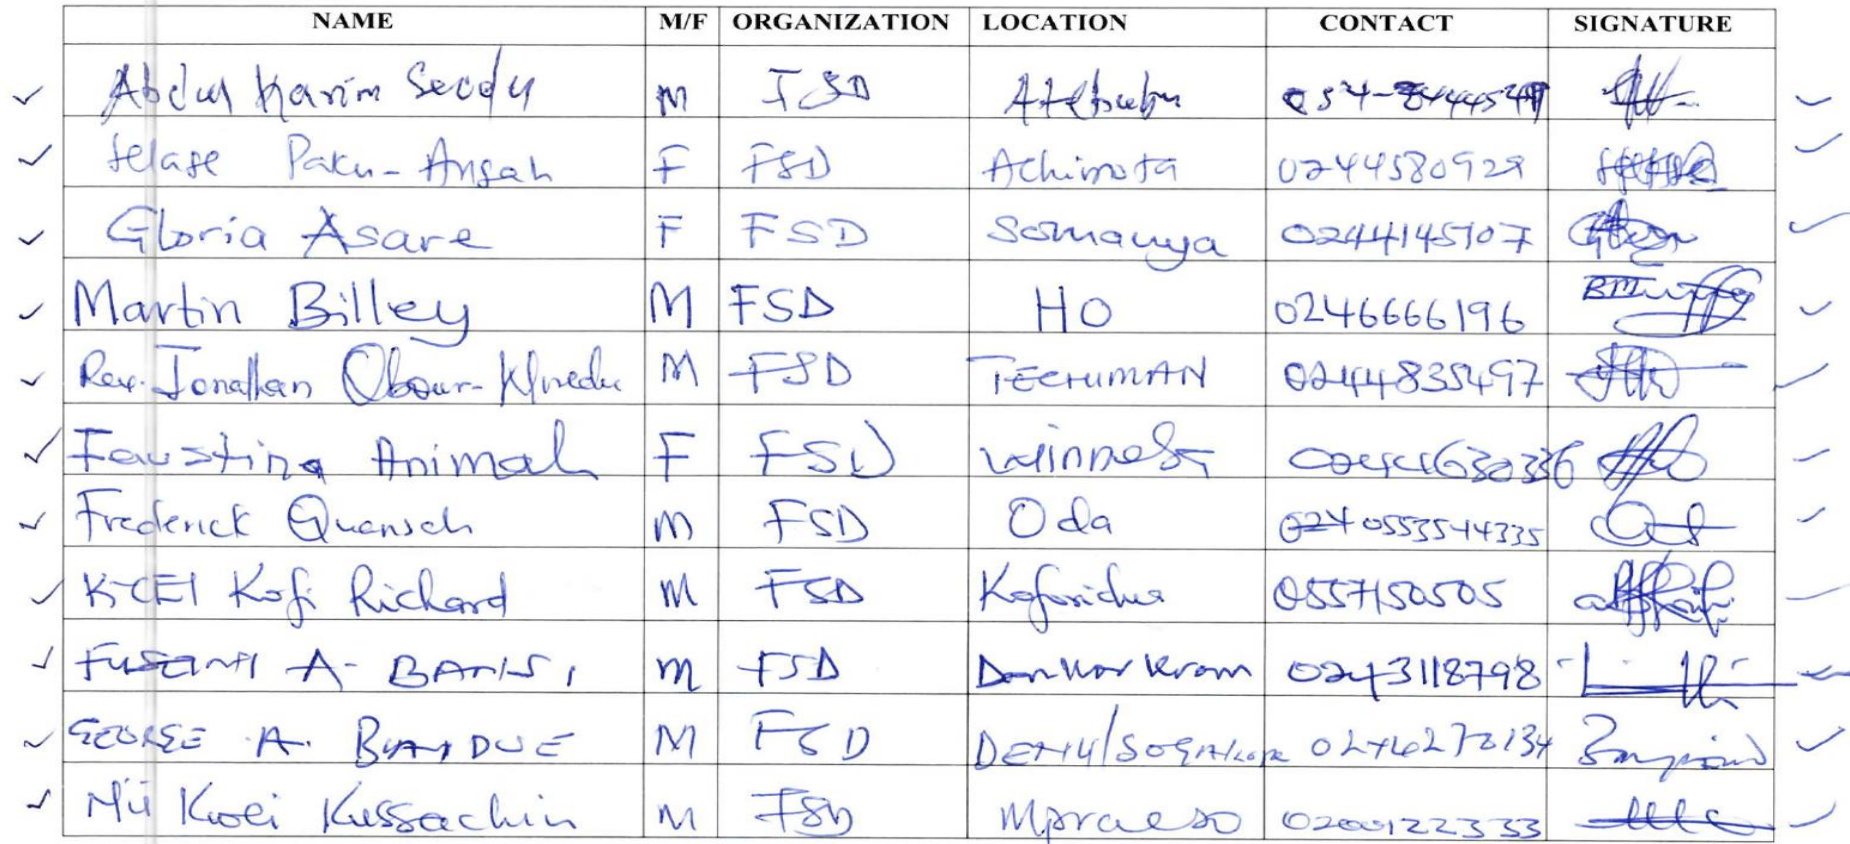 NAME M/F ORGANIZATION LOCATION CONTACT SIGNATURE
Abdul Karim Seody M ISD Atebubu 054-
Selase Paku-Ansah F FSD Achimota 0244580929
Gloria Asare F FSD Somanya 0244145107
Martin Billey M FSD HO 0246666196
Rev. Jonathan Obour- M FSD TECHIMAN 0244835497
Faustina Animah F FSD Winneba 0244630336
Frederick Quansah M FSD Oda 0553544335
Kofi Richard M FSD Koforidua 0557150505
A- M FSD Donkorkrom 0243118798
GEORGE A. M FSD DENU/SOGAKOPE
Nii Kwei Kussachin M FSD Mpraeso